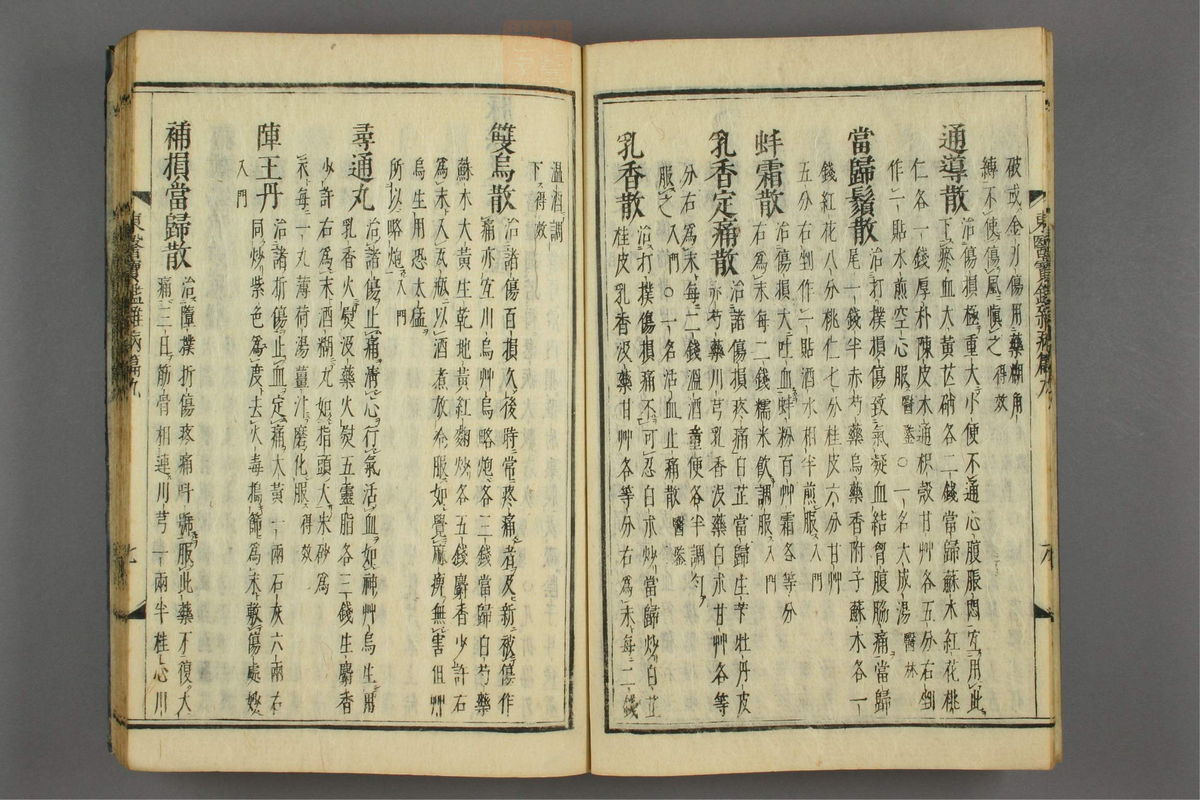 破或金刃傷用藥糊角
縛不使傷風愼之得效
通導散治傷損極重大小便不通心腹脹悶宜用此
下瘀血大黃芒硝各二錢當歸蘇木紅花桃
仁各一錢厚朴陳皮木通枳殼甘艸各五分右剉
作一貼水煎空心服醫鑒○一名大成湯醫林
當歸鬚散治打撲損傷致氣凝血結胷腹脇痛當歸
錢紅花八分桃仁七分桂皮六分甘艸
尾一錢半赤芍藥烏藥香附子蘇木各一
五分右剉作一貼酒水相半煎服入門
蚌霜散治傷損大吐血蚌粉百艸霜各等分
右爲末每二錢糯米飮調服入門
乳香定痛散治諸傷損疼痛白芷當歸生芐牡丹皮
赤芍藥川芎乳香沒藥白朮甘艸各等
分右爲末每二錢溫酒童便各半調勻
服之入門○一名活血止痛散醫鑒
乳香散治打撲傷損痛不可忍白朮炒當歸炒白芷
桂皮乳香沒藥甘艸各等分右爲末每二錢
溫酒調
下得效
雙烏散治諸傷百損久後時常疼痛者及新被傷作
痛亦宜川烏艸烏略炮各三錢當歸白芍藥
蘇木大黃生乾地黃紅麴炒各五錢麝香少許右
爲末入瓦瓶以酒煮放冷服如覺麻痺無害但艸
烏生用恐太猛
所以略炮入門
尋通丸治諸傷止痛淸心行氣活血如神艸烏生用
乳香火熨沒藥火熨五靈脂各三錢生麝香
少許右爲末酒糊丸如指頭大朱砂爲
衣每一丸薄荷湯薑汁磨化服得效
陣王丹治諸折傷止血定痛大黃一兩石灰六兩右
同炒紫色爲度去火毒搗篩爲末敷傷處妙
入門
補損當歸散治墮撲折傷疼痛呌號服此藥不復大
痛三日筋骨相連川芎一兩半桂心川
東醫寶鑑雜病篇九
七